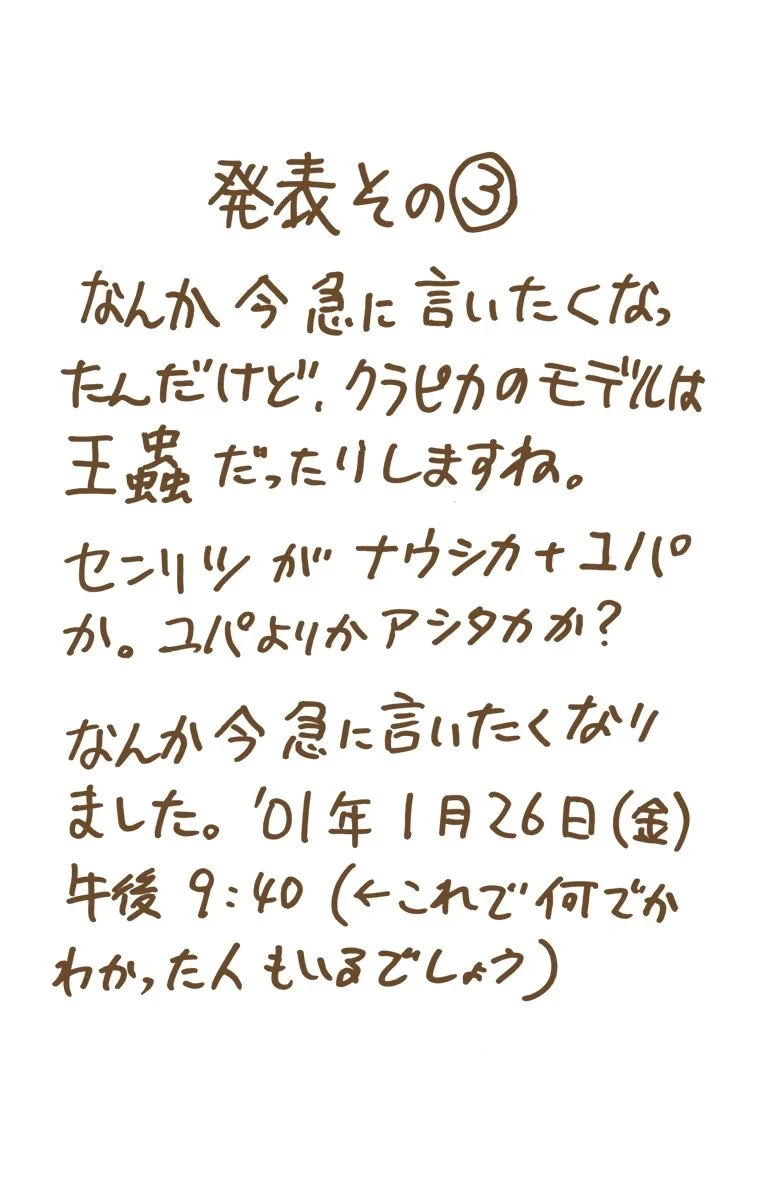 発表その③
なんか今急に言いたくなっ
たんだけど、クラピカのモデルは
王蟲だったりしますね。
センリツがナウシカ+ユパ
か。ユパよりかアシタカか?
なんか今急に言いたくなり
ました。'01年1月26日(金)
午後9:40(←これで何でか
わかった人もいるでしょう)